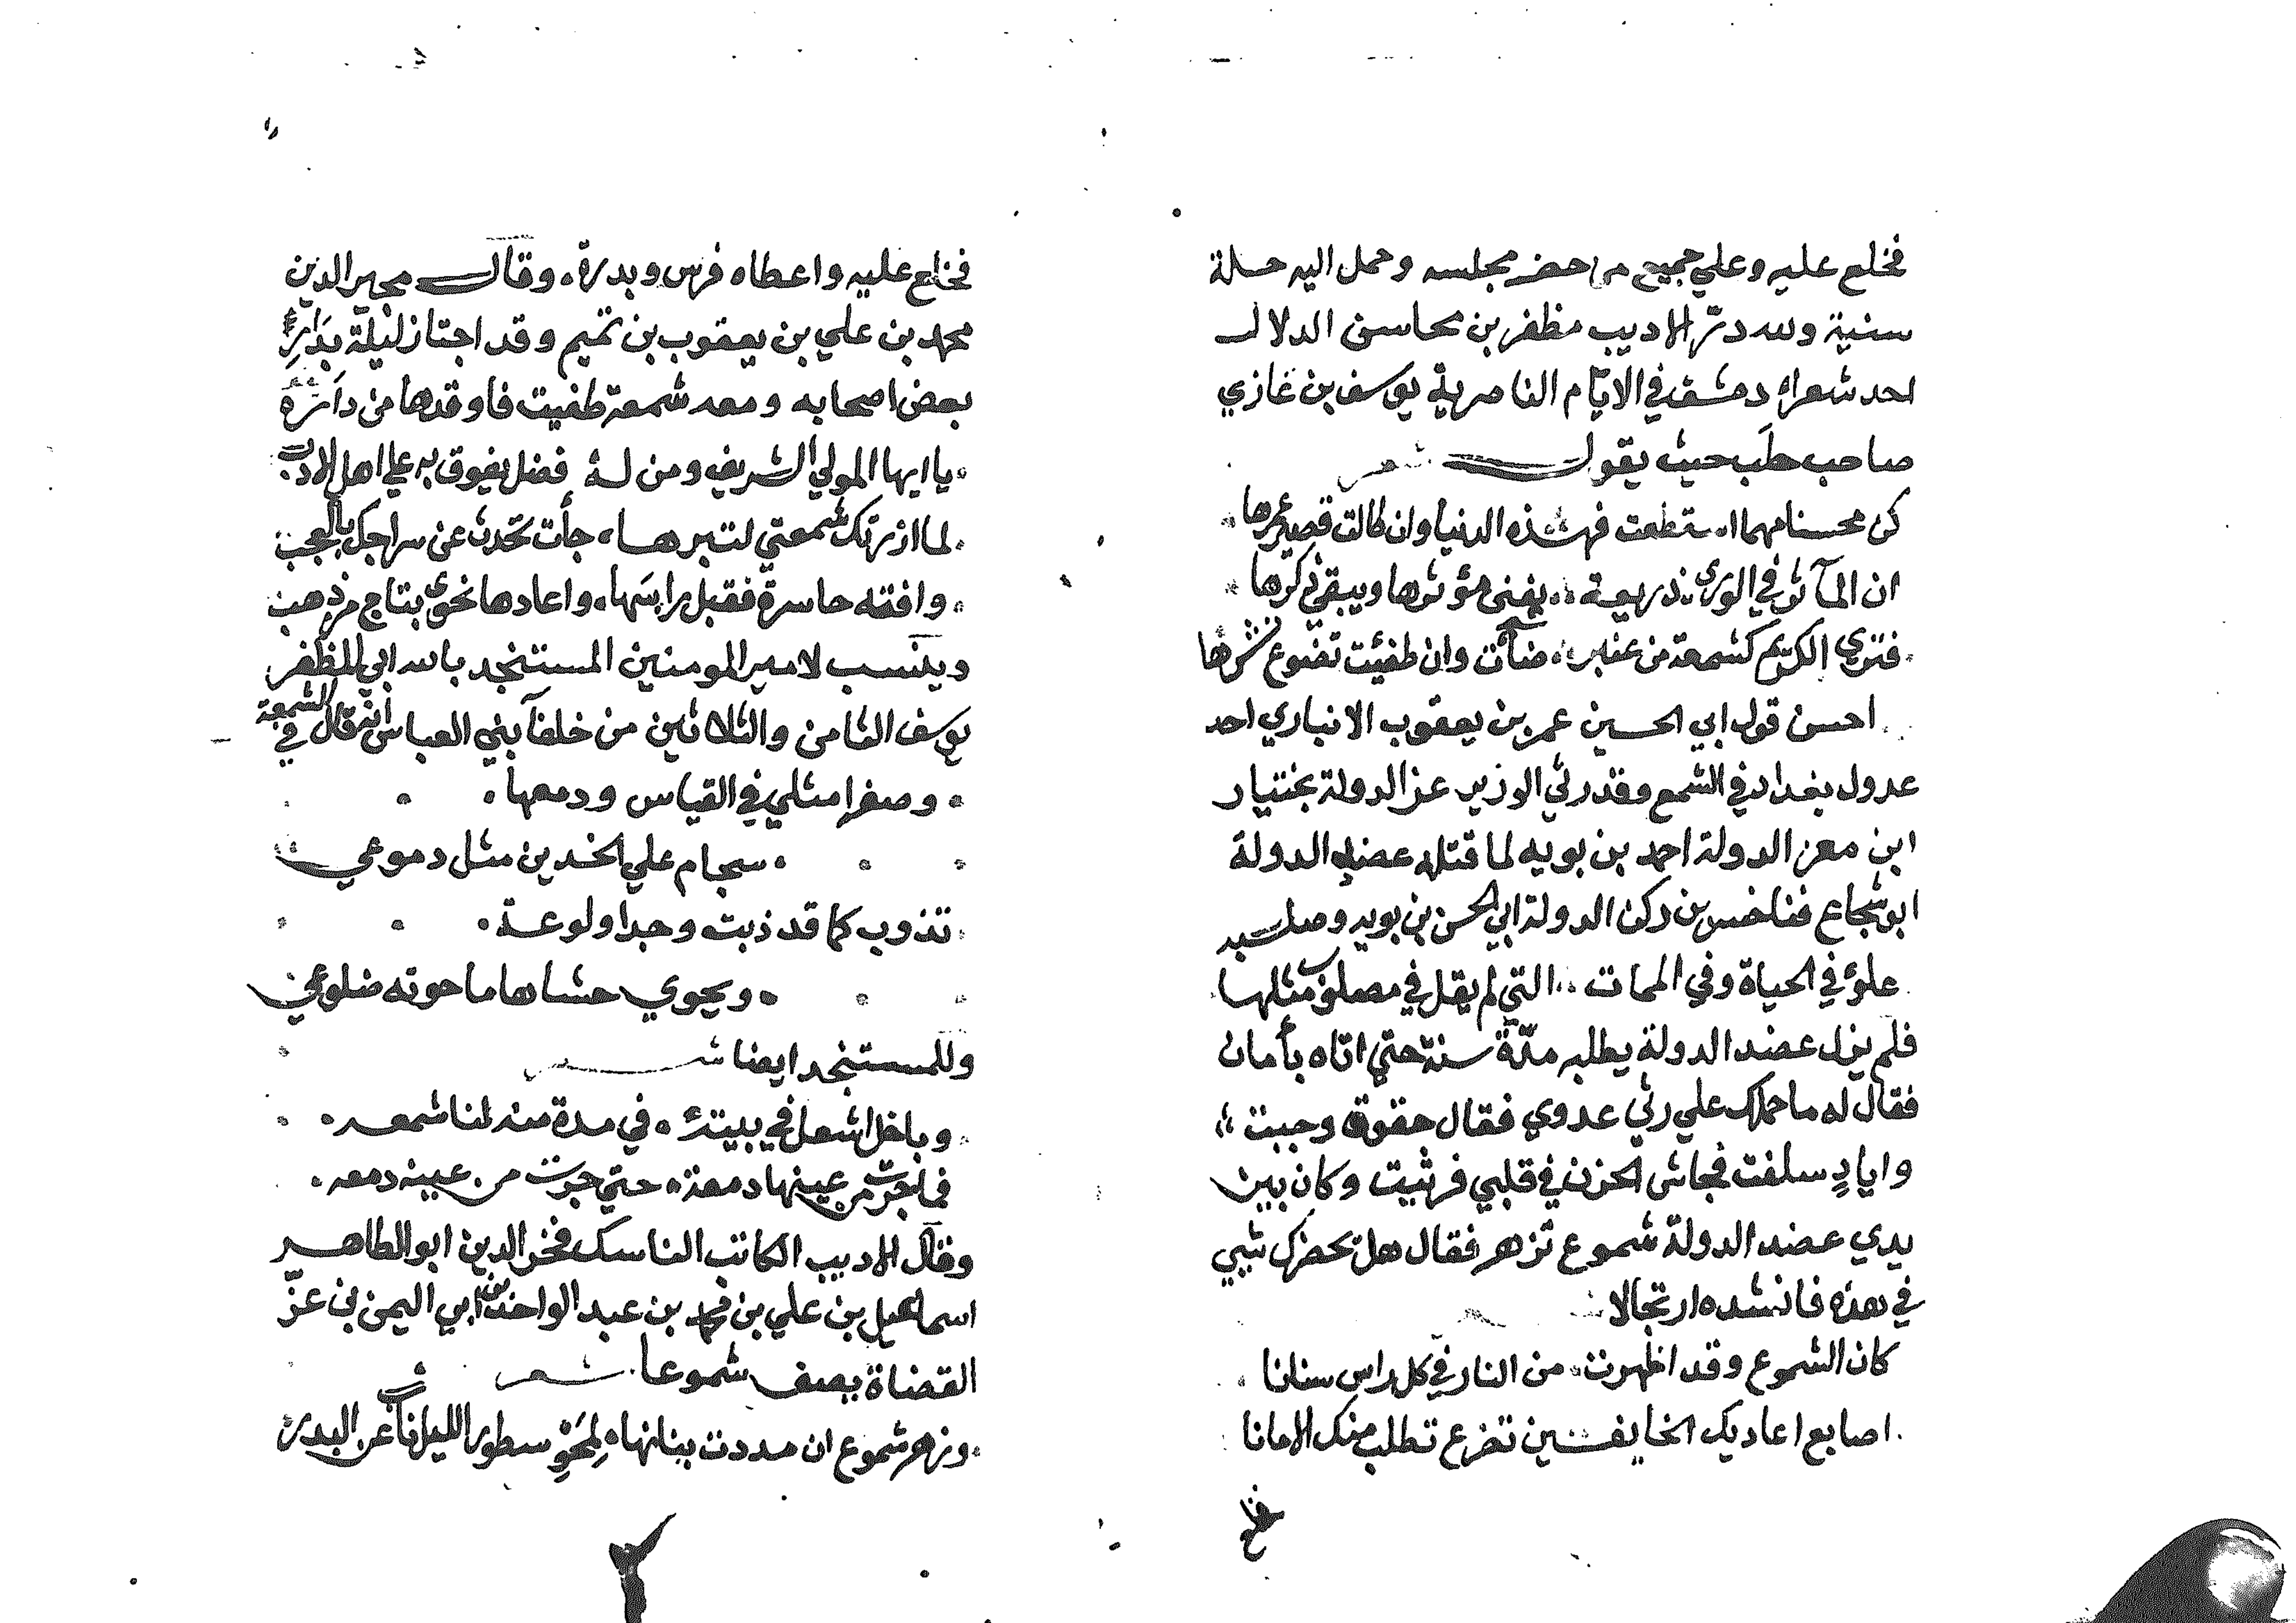 فخلع عليه وعلي جميع من حضر مجلسه وحمل اليه حلة
سنية ولله درّ الاديب مظفر بن محاسن الدلال
احد شعراء دمشق في الايّام الناصرية يوسف بن غازي
صاحب حلَب حيث يقول شعر
كن محسنا مهما استطعت فهذه الدنيا وان طالت قصير عمرها
ان المآثر في الوري ذريعة يفني مؤثرها ويبقي ذكرها
فتري الكريم كشمعة من عنبر ضآت وان طفئت تضوع نشرها
احسن قول ابي الحسين عمر بن يعقوب الانباري احد
عدول بغداد في الشمع وقد رثي الوزير عز الدولة بختيار
ابن معز الدولة احمد بن بويه لما قتله عضد الدولة
ابو شجاع فناخسر بن ركن الدولة ابي الحسن بن بويه وصلبه
علوّ في الحياة وفي الممات التي لم يقل في مصلوب مثلها
فلم يزل عضد الدولة يطلبه مدّة سنة حتي اتاه بأمان
فقال له ما حملك علي رثي عدوي فقال حقوق وجبت
واياد سلفت فجاش الحزن في قلبي فرثيت وكان بين
يدي عضد الدولة شموع تزهر فقال هل تحضرك شي
في هذه فانشده ارتجالا
كان الشموع وقد اظهرت من النار في كل راس سنانا
اصابع اعاديك الخايفين تضرع تطلب منك الامانا
فخلع
فخلع عليه واعطاه فرس وبدرة وقال مجير الدين
محمد بن علي بن يعقوب بن تميم وقد اجتاز ليلة بدَار
بعض اصحابه ومعه شمعة طفيت فاوقدها من داره
يا ايها المولي الشريف ومن له فضل يفوق به علي اهل الادب
لما ازرتك شمعتي لتبرها جأت تحدث عن سراجك بالعجب
وافته حاسرة فقبل راسَها واعادها نحوي بتاج من ذهب
وينسب لامير المومنين المستنجد بالله ابي المظفر
يوسف الثامن والثلاثين من خلفآ بني العباس انه قال في الشمعة
وصفرا مثلي في القياس ودمعها
سجام علي الخدين مثل دموعي
تذوب كما قد ذبت وجدا ولوعة
ويحوي حشاها ما حوته ضلوعي
وللمستنجد ايضا شعر
وباخل اشعل في بيته في مدة منه لنا شمعه
فما جرت من عينها دمعة حتي جرت من عينه دمعه
وقال الاديب الكاتب الناسك فخر الدين ابو الطاهر
اسماعيل بن علي بن محمد بن عبد الواحد بن ابي اليمن بن عزّ
القضاة يصف شموعا شعر
وزهر شموع ان مددت بنانها لمحو سطور الليل ناب عن البدر